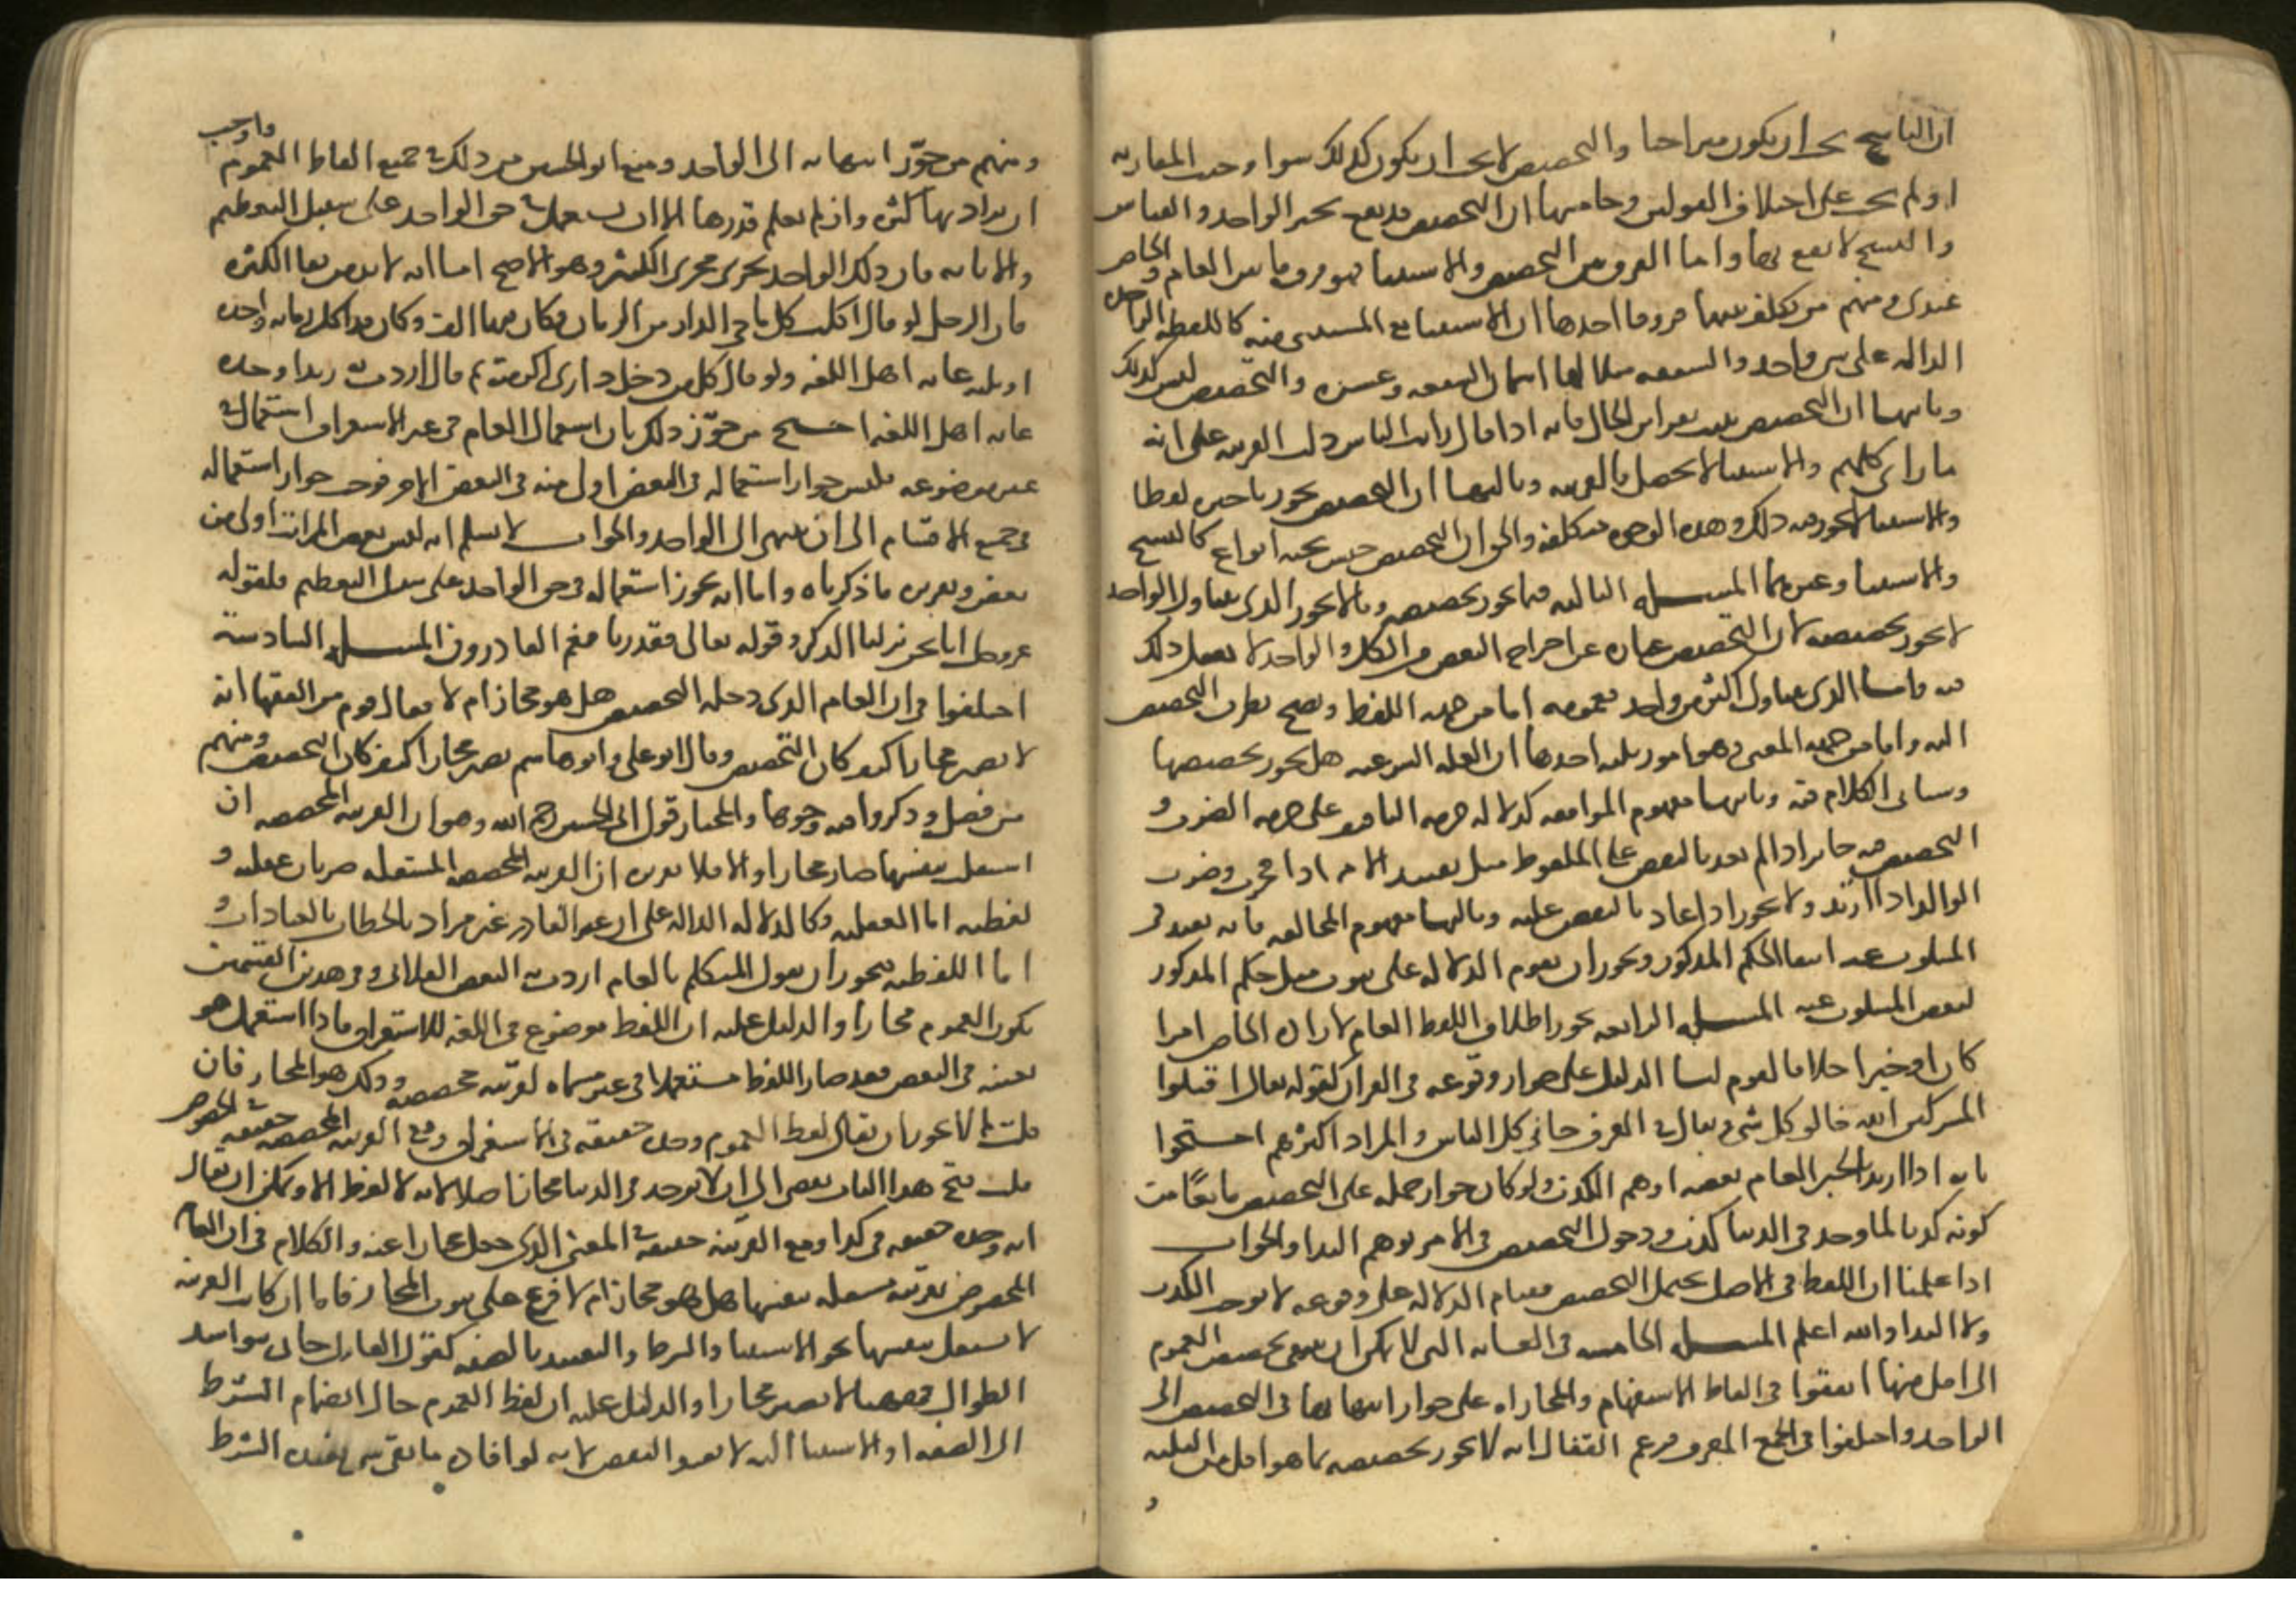 ان الناسخ يجب ان يكون متراخيا والتخصيص لا يجب ان يكون كذلك سوا وجبت المقارنه
او لم يجب على اختلاف القولين وخامسها ان التخصيص قد يقع بخبر الواحد والقياس
والنسخ لا يقع بهما واما الفرق بين التخصيص والاستثنا فهو فرق ما بين العام والخاص
عندى ومنهم من تكلف بينهما فروقا احدها ان الاستثنا مع المستثنى منه كاللفظه الواحده
الداله على شى واحد والسبعه مثلا لها اسمان السبعه وعشره والتخصيص ليس كذلك
وثانيها ان التخصيص يثبت بقراين الحال فانه اذا قال رايت الناس دلت القرينه على انه
ما راى كلهم والاستثنا لا يحصل بالقرينه وثالثها ان التخصيص يجوز تاخيره لفظا
والاستثنا لا يجوز فيه ذلك وهذه الوجوه متكلفه والحق ان التخصيص جنس تحته انواع كالنسخ
والاستثنا وغيرهما المسله الثالثه فيما يجوز تخصيصه وما لا يجوز الذى يتناول الواحد
لا يجوز تخصيصه لان التخصيص عباره عن اخراج البعض من الكل والواحد لا يعقل ذلك
فيه واما الذى يتناول اكثر من واحد فعمومه اما من جهه اللفظ ويصح تطرق التخصيص
اليه واما من جهه المعنى وهو امور ثلثه احدها ان العله الشرعيه هل يجوز تخصيصها
وسياتى الكلام فيه وثانيها مفهوم الموافقه كدلاله حرمه التافيف على حرمه الضرب و
التخصيص فيه جايز اذا لم يعد بالنقض على الملفوظ مثل تقييد الام اذا فجرت وضرب
الوالد اذا ارتد ولا يجوز اذا عاد بالنقض عليه وثالثها مفهوم المخالفه فانه يفيد فى
المسكوت عنه انتفا الحكم المذكور ويجوز ان يقوم الدلاله على ثبوت مثل حكم المذكور
لبعض المسكوت عنه المسله الرابعه يجوز اطلاق اللفظ العام لارادة الخاص امرا
كان او خبرا خلافا لقوم لنا الدليل على جوازه وقوعه فى القران كقوله تعالى اقتلوا
المشركين الله خالق كل شى ويقال فى العرف جانى كل الناس والمراد اكثرهم احتجوا
بانه اذا اريد بالخبر العام بعضه اوهم الكذب ولو كان جواز حمله على التخصيص مانعا من
كونه كذبا لما وجد فى الدنيا كذب ودخول التخصيص فى الامر يوهم البدا والجواب
اذا علمنا ان اللفظ فى الاصل يحتمل التخصيص فقيام الدلاله على وقوعه لا يوجب الكذب
ولا البدا والله اعلم المسله الخامسه فى الغايه التى لا يمكن ان ينتهى تخصيص العموم
الى اقل منها اتفقوا فى الفاظ الاستفهام والمجازاه على جواز انتهايها فى التخصيص الى
الواحد واختلفوا فى الجمع المعرف فزعم القفال انه لا يجوز تخصيصه بما هو اقل من الثلثه
و
ومنهم من جوز انتهايه الى الواحد ومنع ابو الحسين من ذلك فى جميع الفاظ العموم واوجب
ان يراد بها كثره وان لم يعلم قدرها الا ان يستعمل فى حق الواحد على سبيل التعظيم
والابانه فان ذلك الواحد يجرى مجرى الكثير وهو الاصح اما انه لا بد من بقا الكثره
فان الرجل لو قال اكلت كل ما فى الدار من الرمان وكان فيها الف وكان قد اكل رمانه واحده
او ثلثه عابه اهل اللغه ولو قال كل من دخل دارى اكرمته ثم قال اردت به زيدا وحده
عابه اهل اللغه احتج من جوز ذلك بان استعمال العام فى غير الاستغراق استعمال فى
غير موضوعه فليس جواز استعماله فى البعض اولى منه فى البعض الاخر فوجب جواز استعماله
فى جميع الاقسام الى ان ينتهى الى الواحد والجواب لا نسلم انه ليس بعض المراتب اولى من
بعض وتقريره ما ذكرناه واما انه يجوز استعماله فى حق الواحد على سبيل التعظيم فلقوله
عز وجل انا نحن نزلنا الذكر وقوله تعالى فقدرنا فنعم القادرون المسله السادسة
اختلفوا فى ان العام الذى دخله التخصيص هل هو مجاز ام لا فقال قوم من الفقها انه
لا يصير مجازا كيف كان التخصيص وقال ابو على وابو هاشم يصير مجازا كيف كان التخصيص ومنهم
من فصل وذكروا فيه وجوها والمختار قول ابى الحسين رحمه الله وهو ان القرينه المخصصه ان
استقلت بنفسها صار مجازا والا فلا تقريره ان القرينه المخصصه المستقله ضربان عقليه و
لفظيه اما العقليه فكالدلاله الداله على ان غير القادر غير مراد بالخطاب بالعبادات و
اما اللفظيه فيجوز ان يقول المتكلم بالعام اردت به البعض الفلانى وفى هذين القسمين
يكون العموم مجازا والدليل عليه ان اللفظ موضوع فى اللغه للاستغراق فاذا استعمل هو
بعينه فى البعض فقد صار اللفظ مستعملا فى غير مسماه لقرينه مخصصه وذلك هو المجاز فان
قلت لم لا يجوز ان يقال لفظ العموم وحده حقيقه فى الاستغراق ومع القرينه المخصصه حقيقه فى الخصوص
قلت فتح هذا الباب يفضى الى ان لا يوجد فى الدنيا مجاز اصلا لانه لا لفظ الا ويمكن ان يقال
انه وحده حقيقه فى كذا ومع القرينه حقيقه فى المعنى الذى جعل مجازا عنه والكلام فى ان العام
المخصوص بقرينه مستقله بنفسها هل هو مجاز ام لا فرع على ثبوت المجاز فاما ان كانت القرينه
لا تستقل بنفسها نحو الاستثنا والشرط والتقييد بالصفه كقول القايل جانى بنو اسد
الطوال فههنا لا يصير مجازا والدليل عليه ان لفظ العموم حال انضمام الشرط
الى الصفه او الاستثنا اليه لا يفيد البعض لانه لو افاده ما بقى شى يفيده الشرط